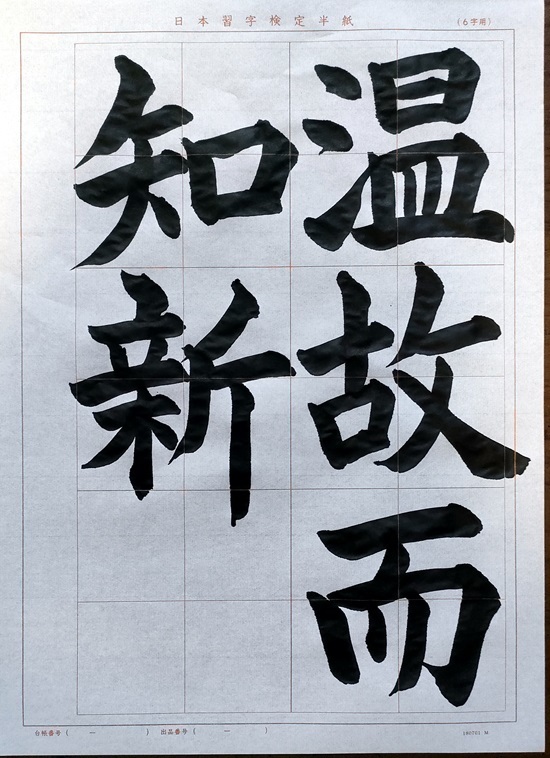 日本習字検定半紙
(6字用)
温故而
知新
台帳番号 ( ー )
出品番号 ( ー )
180701 M